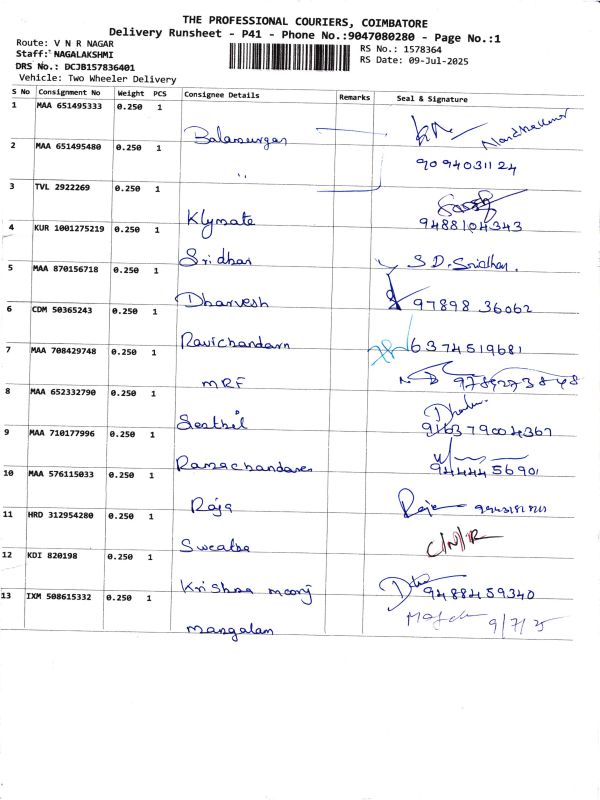 THE PROFESSIONAL COURIERS, COIMBATORE
Delivery Runsheet - P41 - Phone No.:9047080280 - Page No.:1
Route: V N R NAGAR
Staff: NAGALAKSHMI
DRS No.: DCJB157836401
Vehicle: Two Wheeler Delivery
RS No.: 1578364
RS Date: 09-Jul-2025
S No Consignment No Weight PCS Consignee Details Remarks Seal & Signature
1 MAA 651495333 0.250 1 Balamurgan
2 MAA 651495480 0.250 1 " 9094031124
3 TVL 2922269 0.250 1 Klymate 9488104343
4 KUR 1001275219 0.250 1 Sridhar S.D. Sridhar.
5 MAA 870156718 0.250 1 Dharvesh 97898 36062
6 CDM 50365243 0.250 1 Ravichandarn 6374519681
7 MAA 708429748 0.250 1 MRF
8 MAA 652332790 0.250 1 Senthil
9 MAA 710177996 0.250 1 Ramachandaren 94444 56901
10 MAA 576115033 0.250 1 Raja Raja
11 HRD 312954280 0.250 1 Swetha C/N/R
12 KDI 820198 0.250 1 Krishna moorj 9488459340
13 IXM 508615332 0.250 1 Mangalam 9/7/25